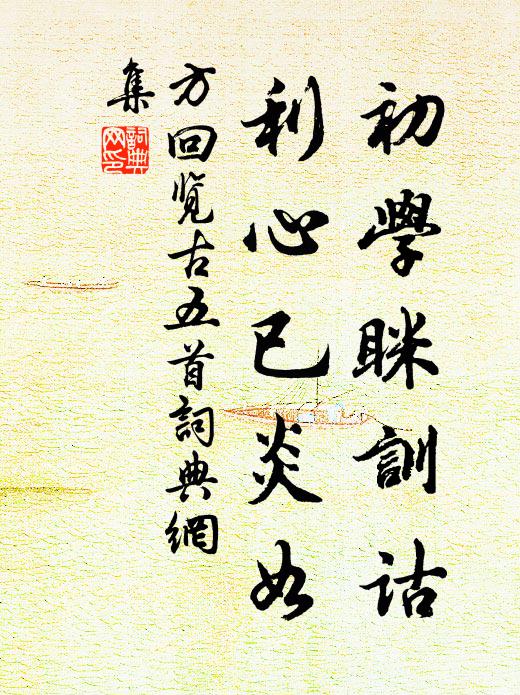 初學眯訓詁
利心已炎如
方回览古五首詞典網
集
詞典
网印